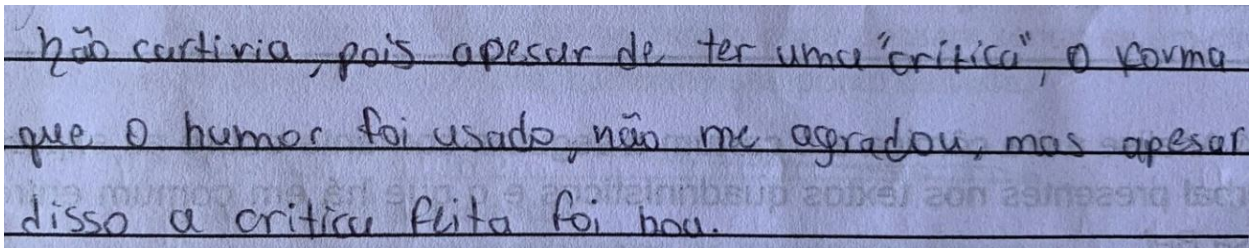 não curtiria, pois apesar de ter uma "crítica", o forma
que o humor foi usado, não me agradou, mas apesar
disso a critica feita foi boa.